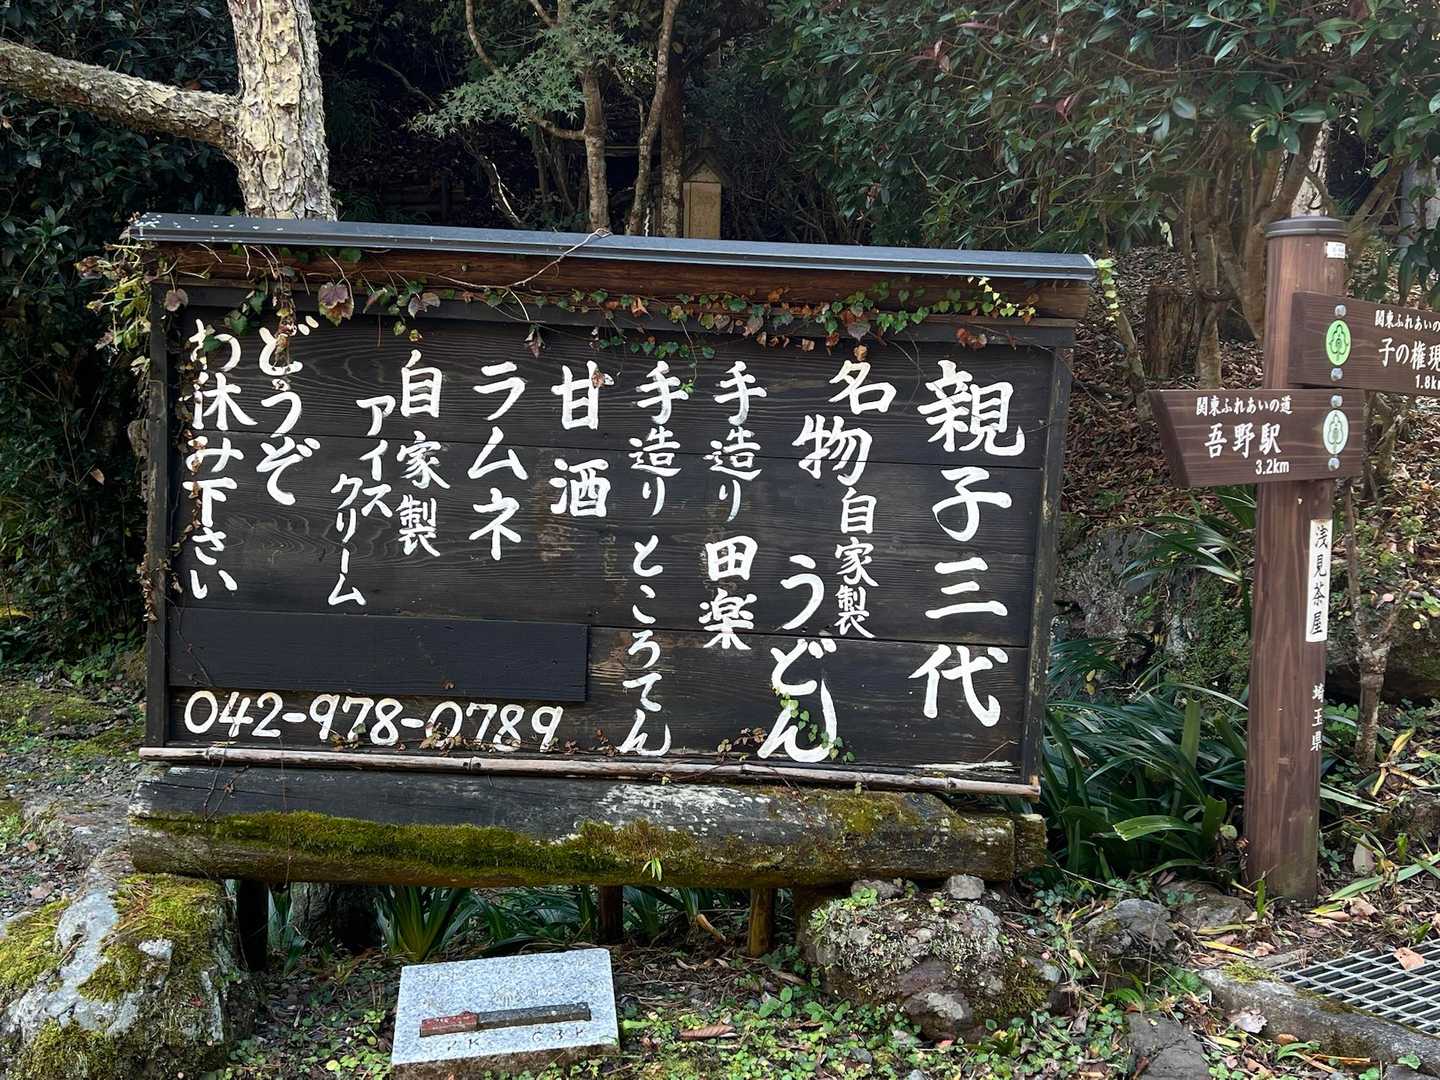 親子三代
名物自家製うどん
手造り田楽
手造りところてん
甘酒
ラムネ
自家製アイスクリーム
どうぞ
お休み下さい
042-978-0789
関東ふれあいの
子の権現
1.8km
関東ふれあいの道
吾野駅
3.2km
浅見茶屋
埼玉県